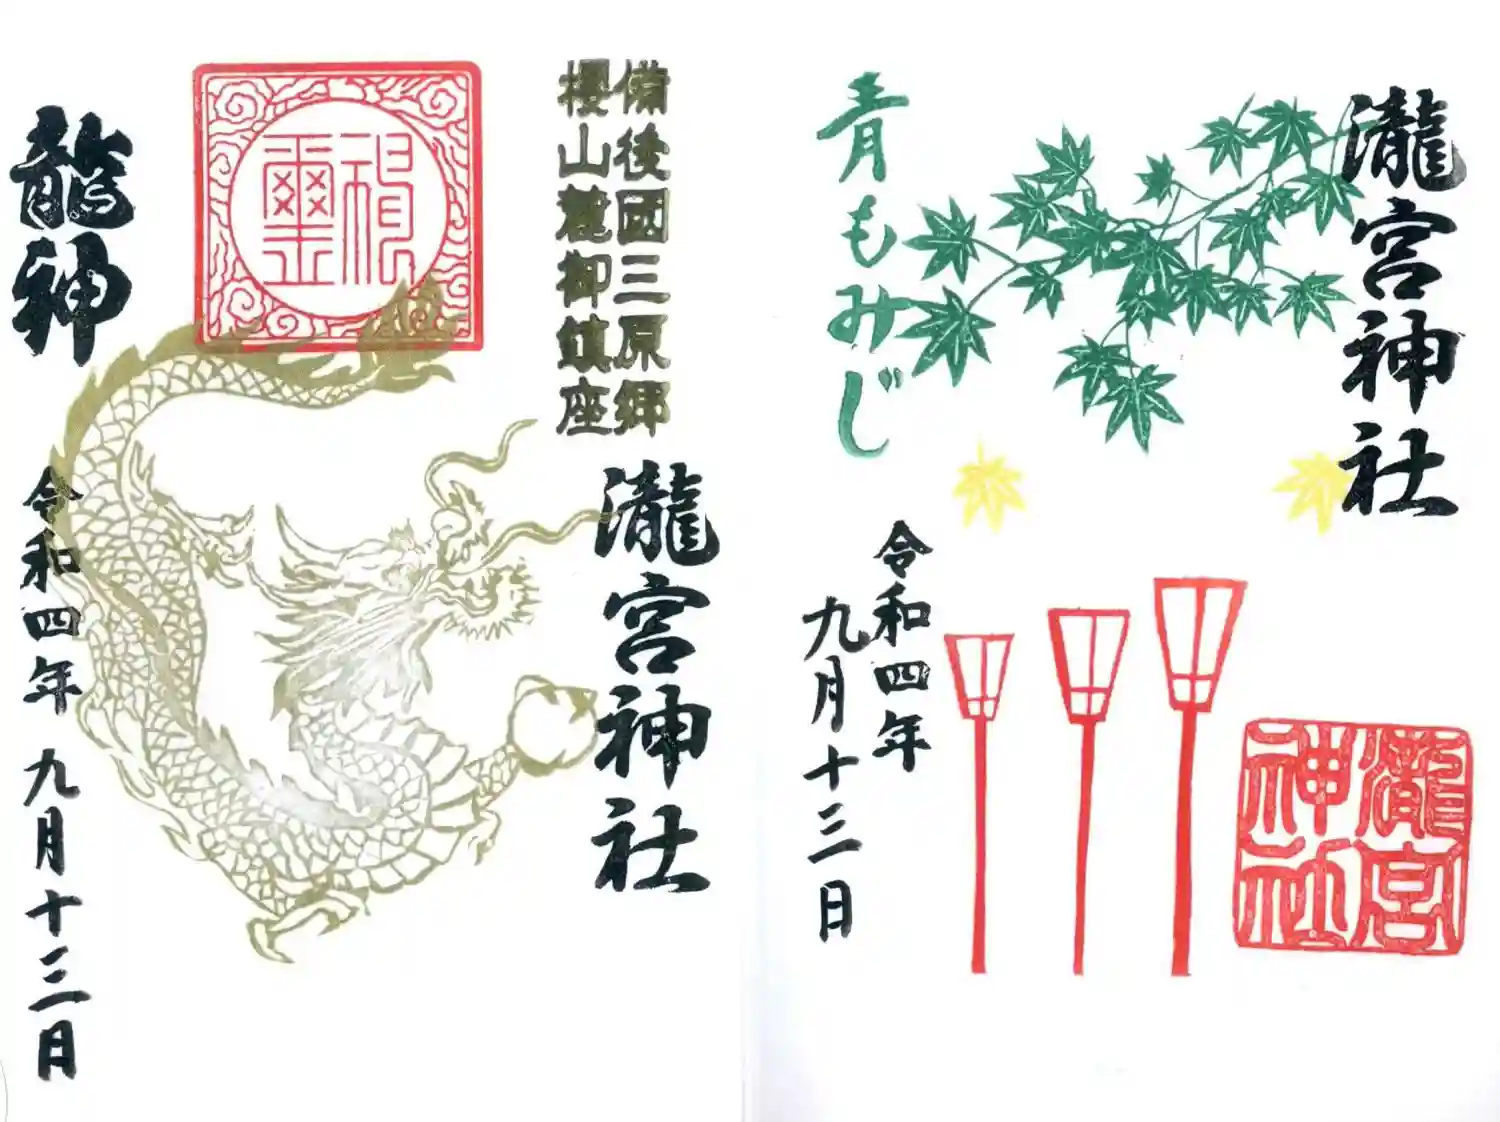 瀧宮神社
瀧宮
神社
令和四年
九月十三日
青もみじ
備後國三原郷
櫻山麓御鎮座
瀧宮神社
龍神
令和四年 九月十三日